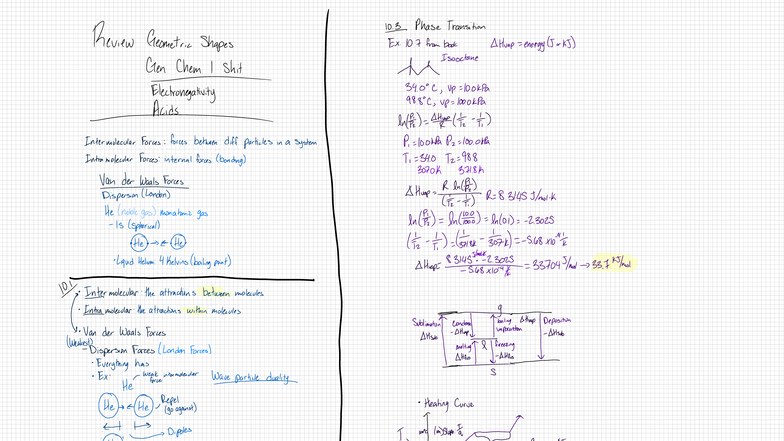 Review Geometric Shapes
Gen Chem 1 Shit
Electronegativity
Acids
Intermolecular Forces: forces between diff particles in a system
Intramolecular Forces: internal forces (bonding)
Van der Waals Forces
Dispersion (London)
He (noble gas) monatomic gas
- 1s (spherical)
He → ← He
• Liquid Helium 4 Kelvins (boiling point)
10.1
• Intermolecular: the attractions between molecules
• Intramolecular: the attractions within molecules
• Van der Waals Forces
(Weakest)
- Dispersion Forces (London Forces)
• Everything has
• Ex:
weak intermolecular force
He
Wave particle duality
He → ← He
Repel
(go against)
He
Dipoles
10.3 Phase Transition
Ex. 10.7 from book ΔHvap = energy (J or kJ)
Isooctane
34.0°C, vp = 10.0kPa
98.8°C, vp = 100.0kPa
ln(P₁/P₂) = ΔHvap/R (1/T₂ - 1/T₁)
P₁ = 10.0kPa P₂ = 100.0kPa
T₁ = 34.0 T₂ = 98.8
307.0K 371.8K
ΔHvap = R ln(P₁/P₂) / (1/T₂ - 1/T₁) R = 8.3145 J/mol·K
ln(P₁/P₂) = ln(10.0/100.0) = ln(0.1) = -2.3025
(1/T₂ - 1/T₁) = (1/371.8K - 1/307K) = -5.68 x10⁻⁴ 1/K
ΔHvap = 8.3145 J/mol·K · -2.3025 / -5.68 x10⁻⁴ 1/K = 33704 J/mol → 33.7 kJ/mol
g
Sublimation
ΔHsub
-ΔHvap
boiling
vaporization
ΔHvap
Deposition
-ΔHsub
melting
ΔHfus
l
freezing
-ΔHfus
s
• Heating Curve